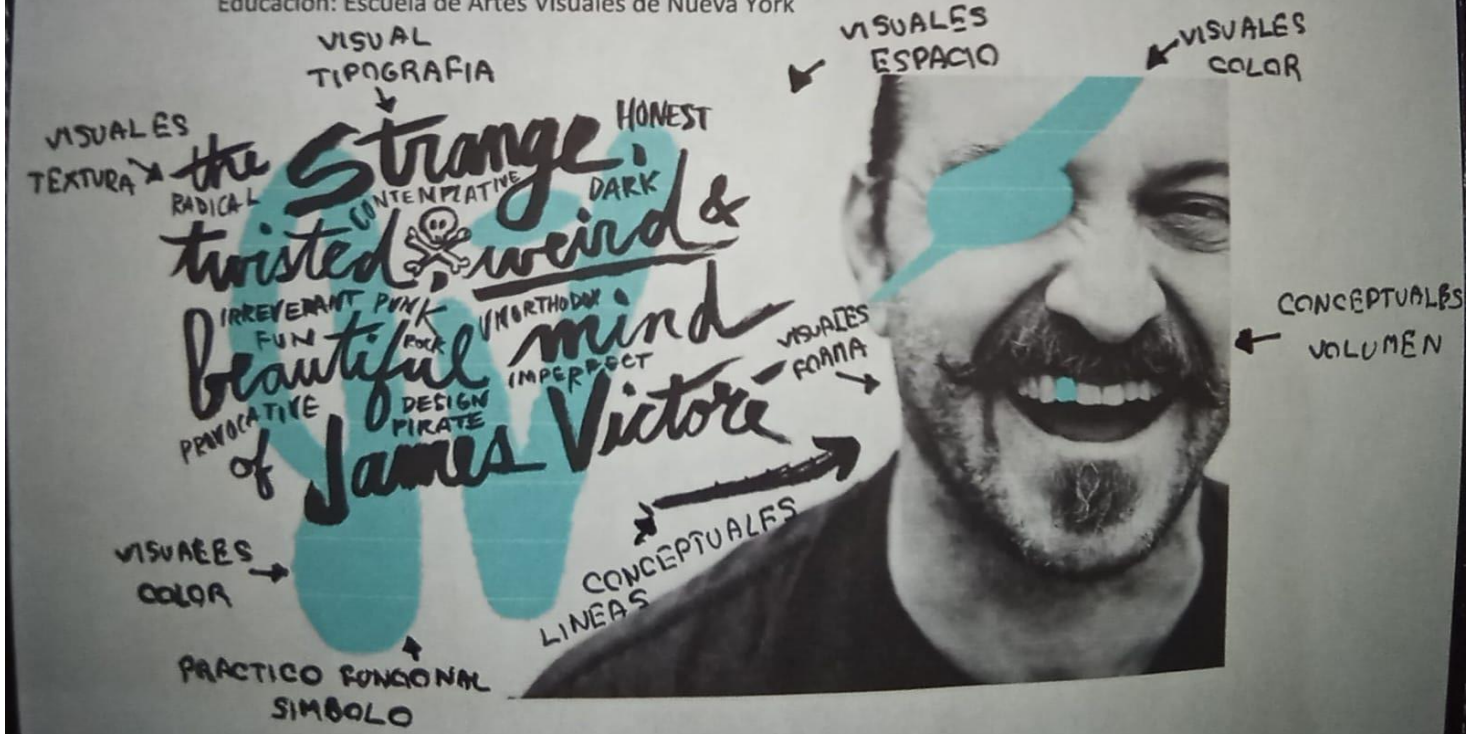 Educación: Escuela de Artes Visuales de Nueva York
VISUAL
TIPOGRAFIA
VISUALES
ESPACIO
VISUALES
COLOR
VISUALES
TEXTURA
the Strange, HONEST
RADICAL CONTEMPLATIVE DARK
twisted, weird &
IRREVERANT PUNK UNORTHODOX
FUN ROCK
beautiful mind
IMPERFECT
PROVOCATIVE DESIGN
PIRATE
of James Victore
VISUALES
FORMA
CONCEPTUALES
VOLUMEN
CONCEPTUALES
LINEAS
VISUALES
COLOR
PRACTICO FUNCIONAL
SIMBOLO